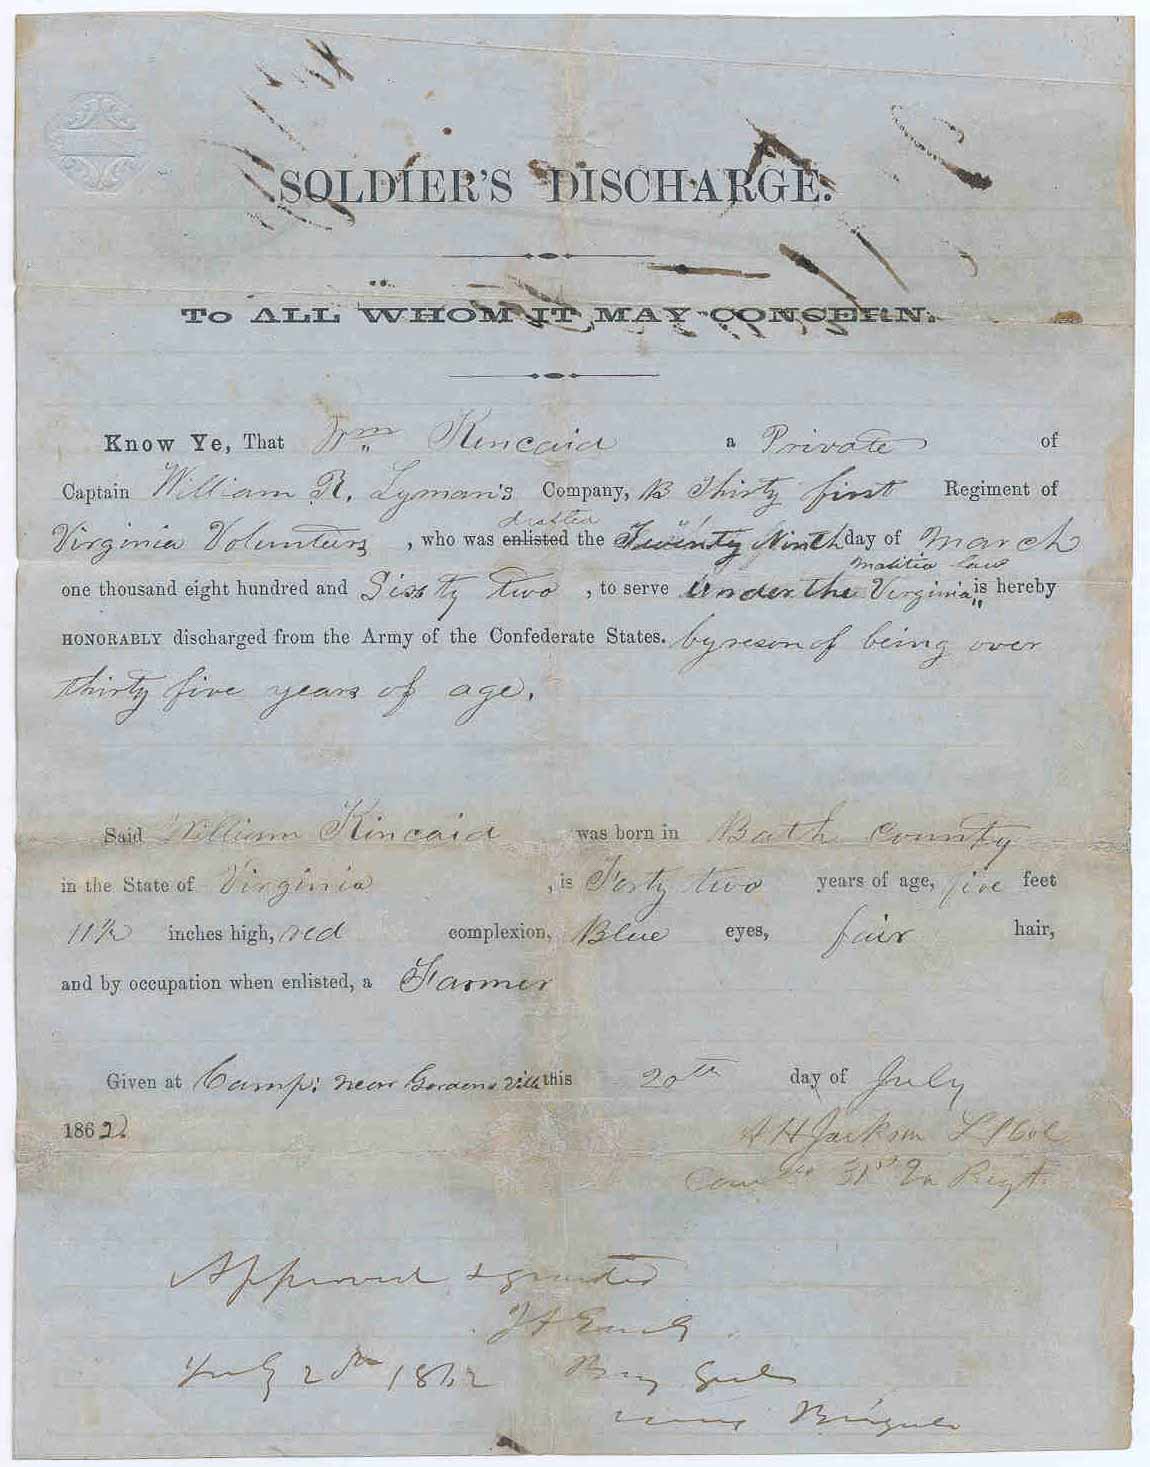 SOLDIER'S DISCHARGE.
TO ALL WHOM IT MAY CONCERN:
Know Ye, That Wm Kincaid a Private of
Captain William R. Lyman's Company, B Thirty first Regiment of
drafted
Virginia Volunteers, who was enlisted the Twenty Ninth day of March
malitia law
one thousand eight hundred and Sixty two, to serve under the Virginia is hereby
HONORABLY discharged from the Army of the Confederate States. by reson of being over
thirty five years of age.
Said William Kincaid, was born in Bath County
in the State of Virginia, is Forty two years of age, five feet
11½ inches high, red complexion, Blue eyes, fair hair,
and by occupation when enlisted, a Farmer
Given at Camp: near Gordonsville this 20th day of July
1862
A H Jackson Lt Col
Comdg 31st Va Regt
Approved & granted
J A Early
July 20th 1862 Brig Genl
Brigade